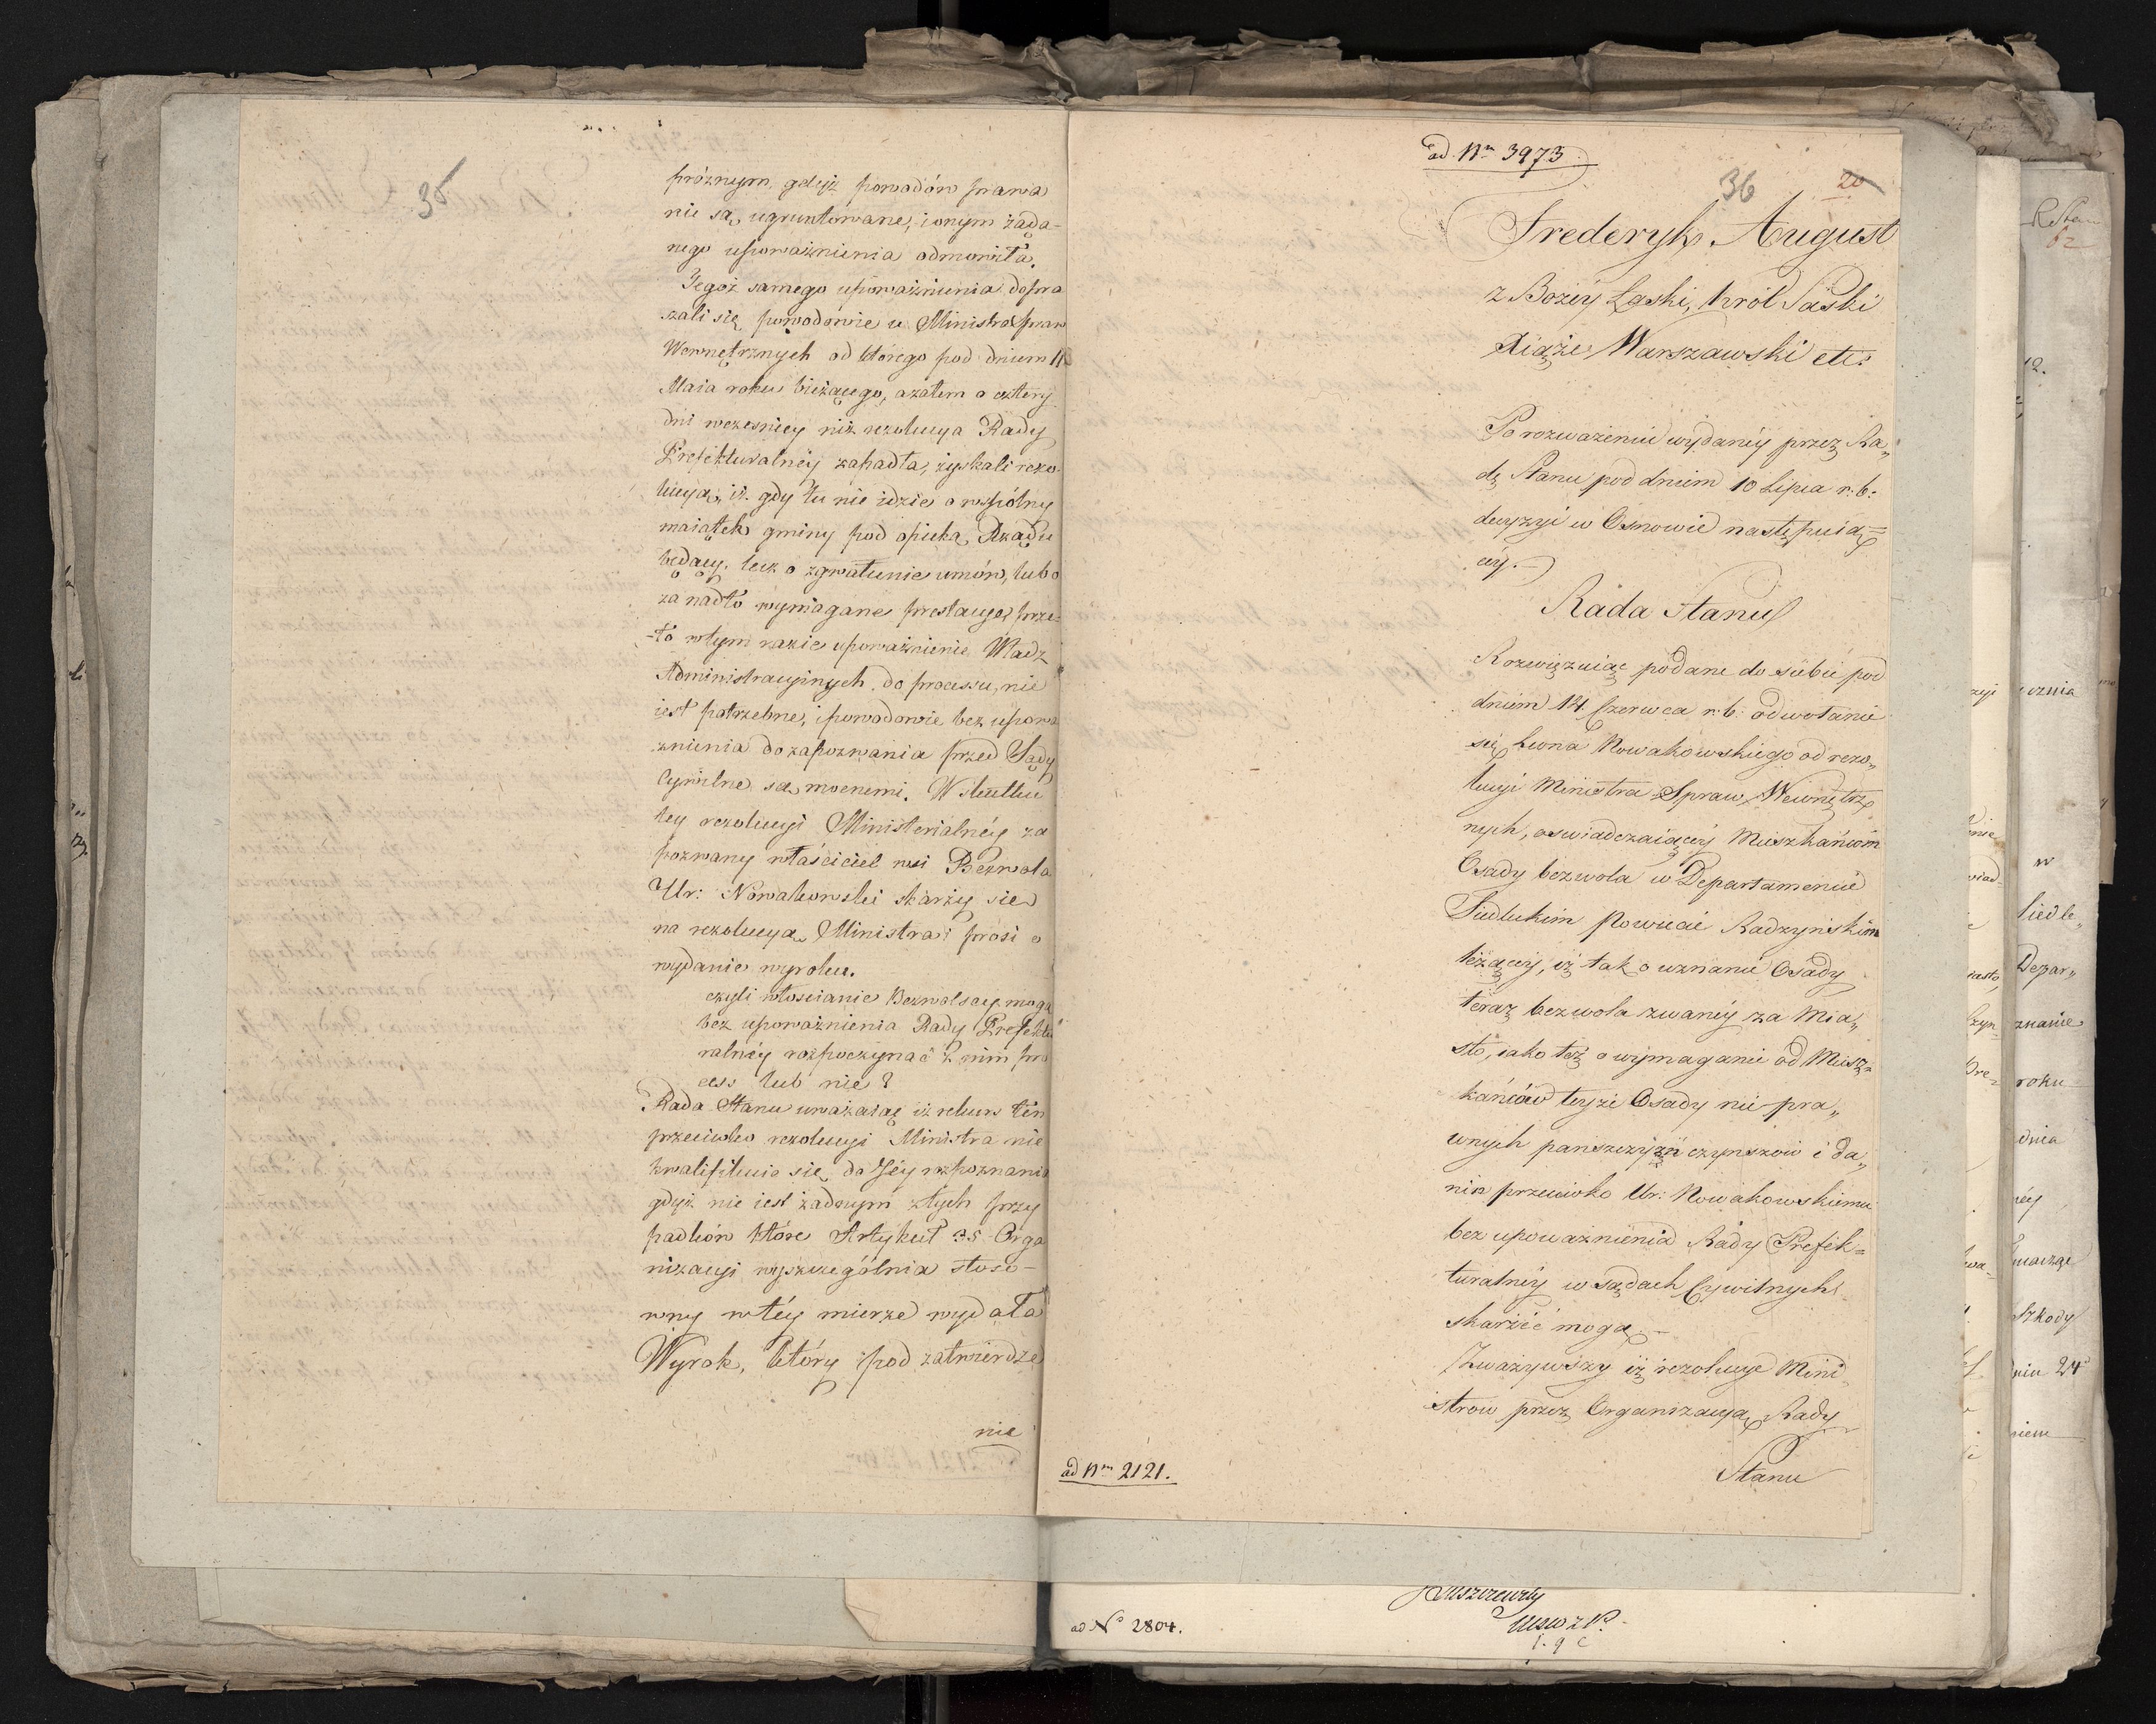 35
próżnym, gdyż powodów prawa
nie są ugruntowane, i onym żąda-
nego upoważnienia odmówiła.
Tegoż samego upoważnienia dopra
szali się powodowie u Ministra Spraw
Wewnętrznych od którego pod dniem 11
Maia roku bieżącego, a zatem o cztery
dni wczesniey niż rezolucya Rady
Prefekturalnéy zapadła, zyskali rezo
lucyą, iż gdy tu nie idzie o wspólny
maiątek gminy pod opieką Rządu
będący, lecz o zgwałcenie umów, lub o
za nadto wymagane prestacye, prze-
-to w tym razie upoważnienie Władz
Administracyinych do processu, nie
iest potrzebne, i powodowie bez upowa
żnienia do zapozwania przed Sądy
Cywilne są mocnemi. W skutku
tey rezolucyi Ministerialnéy za
pozwany właściciel wsi Bezwola
Ur: Nowakowski skarży się
na rezolucyą Ministra i prosi o
wydanie wyroku.
czyli włoscianie Bezwolscy mogą
bez upoważnienia Rady Prefektu
ralnéy rozpoczynać z nim pro
cess lub nie?
Rada Stanu uważaiąc iż rekurs ten
przeciwko rezolucyi Ministra nie
kwalifikuie się do Jéy rozpoznania
gdyż nie iest żadnym z tych przy
padków które Artykuł 35 Orga
nizacyi wyszczególnia stoso-
wny w téy mierze wydała
Wyrok, który pod zatwierdze
nie
ad Nm 3973
36
20
Frederyk August
z Bożéy Łaski, Król Saski
Xiąże Warszawski etc:
Po rozważeniu wydanéy przez Ra„
dę Stanu pod dniem 10 Lipca r: b:
decyzyi w Osnowie następuią=
céy.—
Rada Stanu
Rozwięzuiąc podane do siebie pod
dniem 14. Czerwca r: b: odwołanie
się Leona Nowakowskiego od rezo„
lucyi Ministra Spraw Wewnętrz
nych, oswiadczaiącéy Mieszkańcom
Osady bezwola w Departamencie
Siedleckim Powiecie Radzyńskim
leżącéy, iż tak o uznanie Osady
teraz bezwola zwanéy za Mia„
sto, iako też o wymaganie od Miesz=
kańców teyże Osady nie pra„
wnych panszczyzn czynszow i da„
nin przeciwko Ur: Nowakowskiemu
bez upoważnienia Rady Prefek=
turalnéy w sądach Cywilnych
skarżić mogą.—
Zważywszy iż rezolucye Mini
strow przez Organizacyą Rady
Stanu
ad Nm 2121.
ad No 2804.
R. Stanu
62
w
Siedle„
Depar„
znanie
roku
dnia
Szkody
niu 24